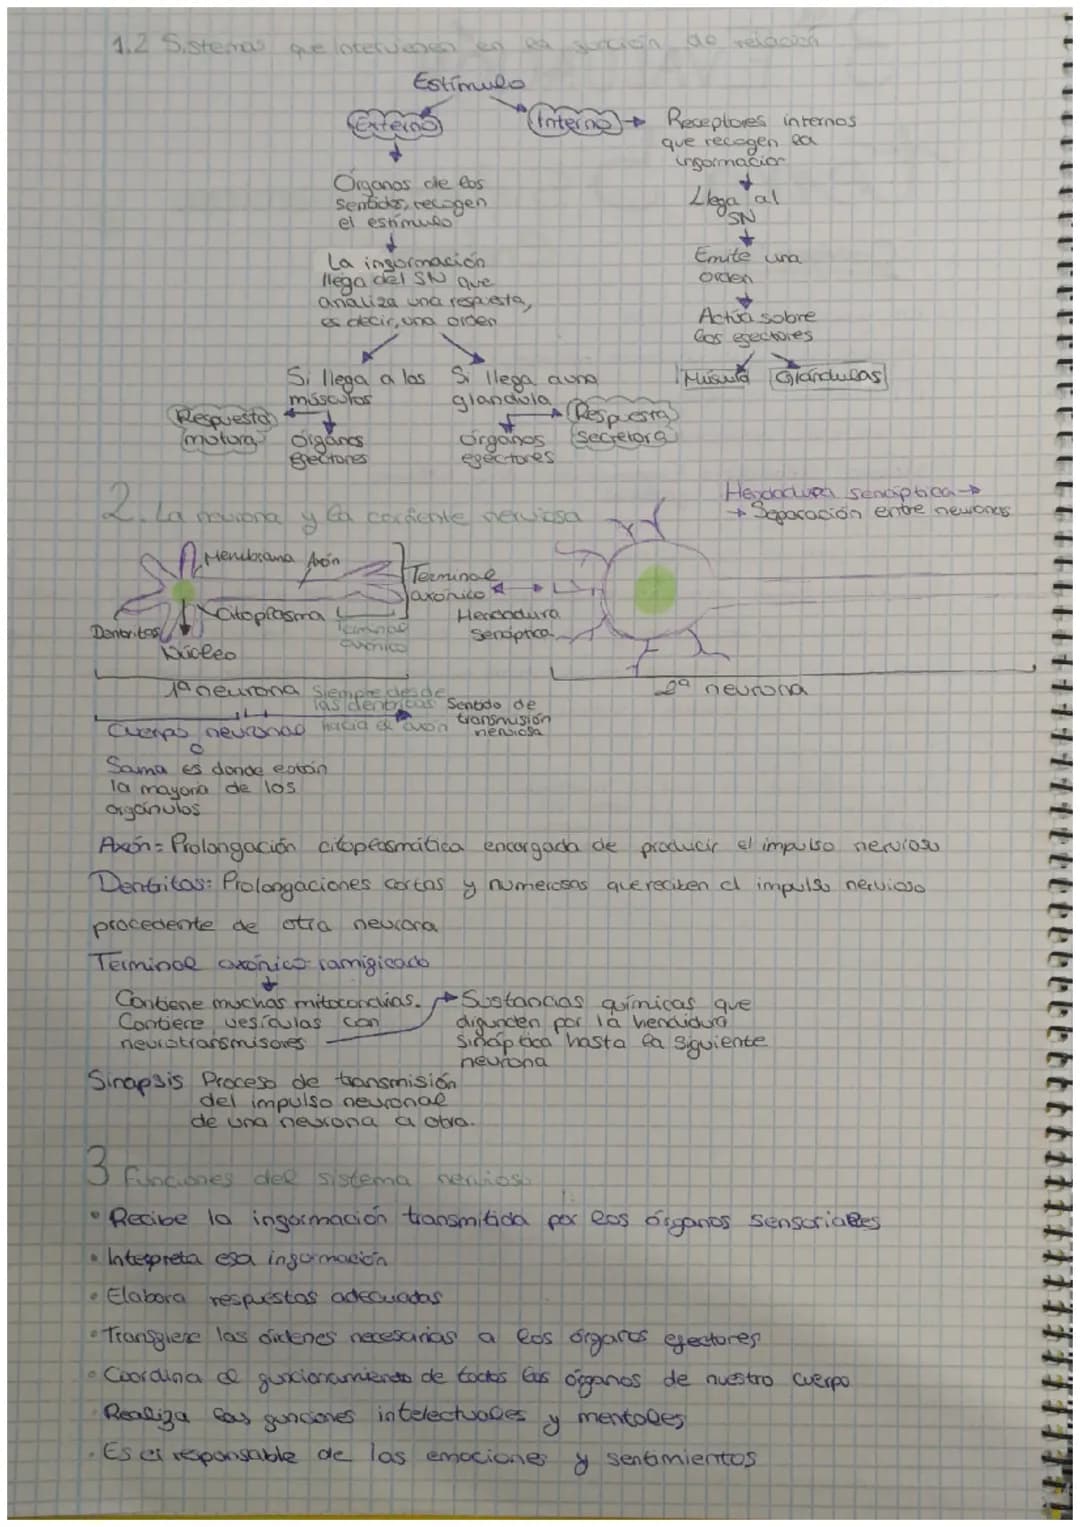 1.2 Sistemas que intervienen en la función de relación
Estímulo
Externo
Interno → Receptores internos
que recogen la
información
Órganos de los
sentidos, recogen
el estímulo
Llega al
SN
La información
llega del SN que
analiza una respuesta,
es decir, una orden
Emite una
orden
Actúa sobre
los efectores
Si llega a los
músculos
Si llega a una
glandula
Músculo
Glándulas
Respuesta
motora
órganos
efectores
órganos
efectores
Respuesta
secretora
2. La neurona y la corriente nerviosa
Hendadura senáptica →
→ Separación entre neuronas
Membrana
Axón
Terminal
axónico
Citoplasma
Terminal
axónico
Hendadura
Senáptica
Dentritas
Núcleo
1ª neurona
2ª neurona
Siempre desde
las dentritas
hacia el axón
Sentido de
transmisión
nerviosa
Cuerpo neuronal
o
Soma es donde están
la mayoría de los
orgánulos
Axón = Prolongación citoplasmática encargada de producir el impulso nervioso
Dentritas: Prolongaciones cortas y numerosas que reciben el impulso nervioso
procedente de otra neurona
Terminal axónico ramificado
Contiene muchas mitocondrias.
Contiene vesículas con
neurotransmisores
Sustancias químicas que
difunden por la hendidura
sináptica hasta la siguiente
neurona
Sinapsis Proceso de transmisión
del impulso neuronal
de una neurona a otra.
3 Funciones del sistema nervioso
• Recibe la información transmitida por los órganos sensoriales
• Interpreta esa información
• Elabora respuestas adecuadas
• Transfiere las órdenes necesarias a los órganos efectores
• Coordina el funcionamiento de todos los órganos de nuestro cuerpo
• Realiza las funciones intelectuales y mentales
• Es el responsable de las emociones y sentimientos